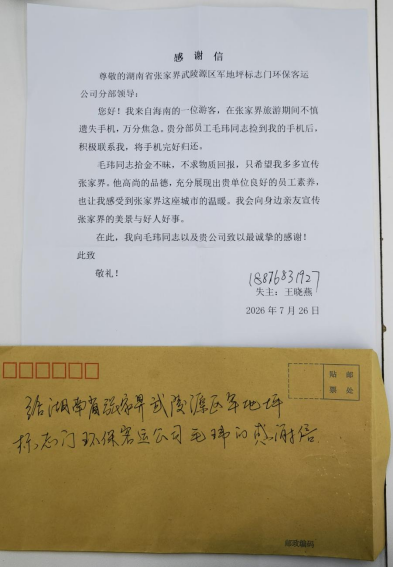 感 谢 信
尊敬的湖南省张家界武陵源区军地坪标志门环保客运
公司分部领导：
您好！我来自海南的一位游客，在张家界旅游期间不慎
遗失手机，万分焦急。贵分部员工毛玮同志捡到我的手机后，
积极联系我，将手机完好归还。
毛玮同志拾金不昧，不求物质回报，只希望我多多宣传
张家界。他高尚的品德，充分展现出贵单位良好的员工素养，
也让我感受到张家界这座城市的温暖。我会向身边亲友宣传
张家界的美景与好人好事。
在此，我向毛玮同志以及贵公司致以最诚挚的感谢！
此致
敬礼！
18876831927
失主：王晓燕
2026 年 7 月 26 日
贴 邮
票 处
给湖南省张家界武陵源区军地坪
标志门环保客运公司毛玮的感谢信
邮政编码